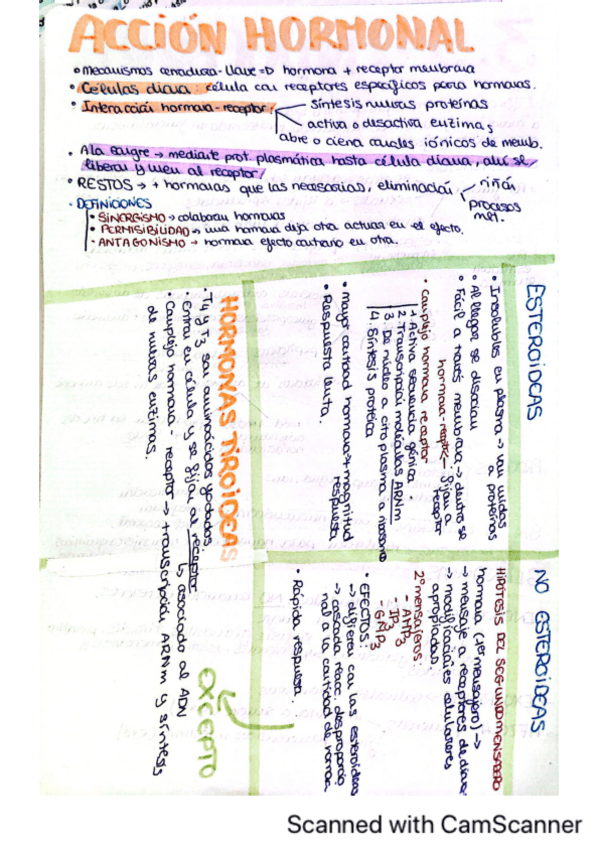 ACCIÓN HORMONAL
• Mecanismos cerradura-llave => hormona + receptor membrana
• Células diana: célula con receptores específicos para hormonas.
• Interacción hormona-receptor:
síntesis nuevas proteínas
activa o desactiva enzimas
abre o cierra canales iónicos de memb.
• A la sangre → mediante prot. plasmática hasta célula diana, allí se
liberan y unen al receptor
• RESTOS → + hormonas que las necesarias, eliminación
riñón
procesos
met.
• DEFINICIONES
• SINERGISMO → colaboran hormonas
• PERMISIBILIDAD → una hormona deja otra actuar en el efecto.
• ANTAGONISMO → hormona efecto contrario en otra.
ESTEROIDEAS
• Insolubles en plasma → van unidas
a proteínas
• Al llegar se disocian
• Fácil a través membrana → dentro se
fijan a
receptor
hormona-receptor
• complejo hormona receptor
1. Activa secuencia génica
2. Transcripción moléculas ARNm
3. De núcleo a citoplasma a ribosoma
4. Síntesis proteica
• mayor cantidad hormona → + magnitud
respuesta
• Respuesta lenta.
NO ESTEROIDEAS
HIPÓTESIS DEL SEGUNDO MENSAJERO
hormona (1er mensajero) →
→ mensaje a receptores de diana
→ modificaciones celulares
apropiadas.
2º mensajeros:
- AMP3
- IP3
- GMP3
• EFECTOS:
→ difieren con las esteroideas
→ cascada reacc. desproporcio
nal a la cantidad de hormona
• Rápida respuesta.
EXCEPTO
HORMONAS TIROIDEAS
• T4 y T3 son aminoácidos yodados.
• entran en célula y se fijan al receptor
↳ asociado al ADN
• Complejo hormona-receptor → transcripción ARNm y síntesis
de nuevas enzimas.
Scanned with CamScanner